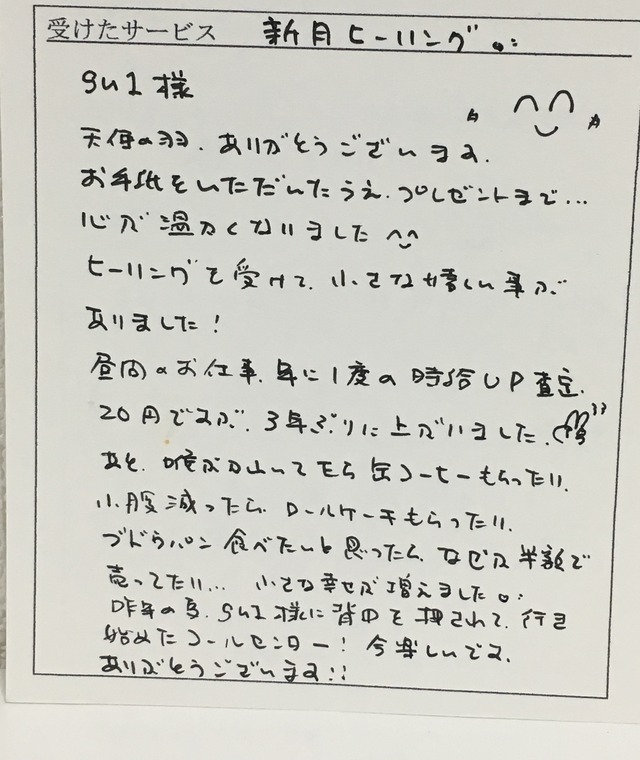 受けたサービス 新月ヒーリング
gu1様
天使の羽、ありがとうございます。
お手紙をいただいたうえ、プレゼントまで…
心が温かくなりました
ヒーリングを受けて、小さな嬉しい事が
ありました!
昼間のお仕事、年に1度の時給UP査定、
20円ですが、3年ぶりに上がいました、
あと、喉がかわいてたら缶コーヒーもらったり、
小腹減ったら、ロールケーキもらったり、
ブドウパン食べたいと思ったら、なぜか半額で
売ってたり… 小さな幸せが増えました
昨年の夏、gu1様に背中を押されて、行き
始めたコールセンター! 今楽しいです。
ありがとうございます!!